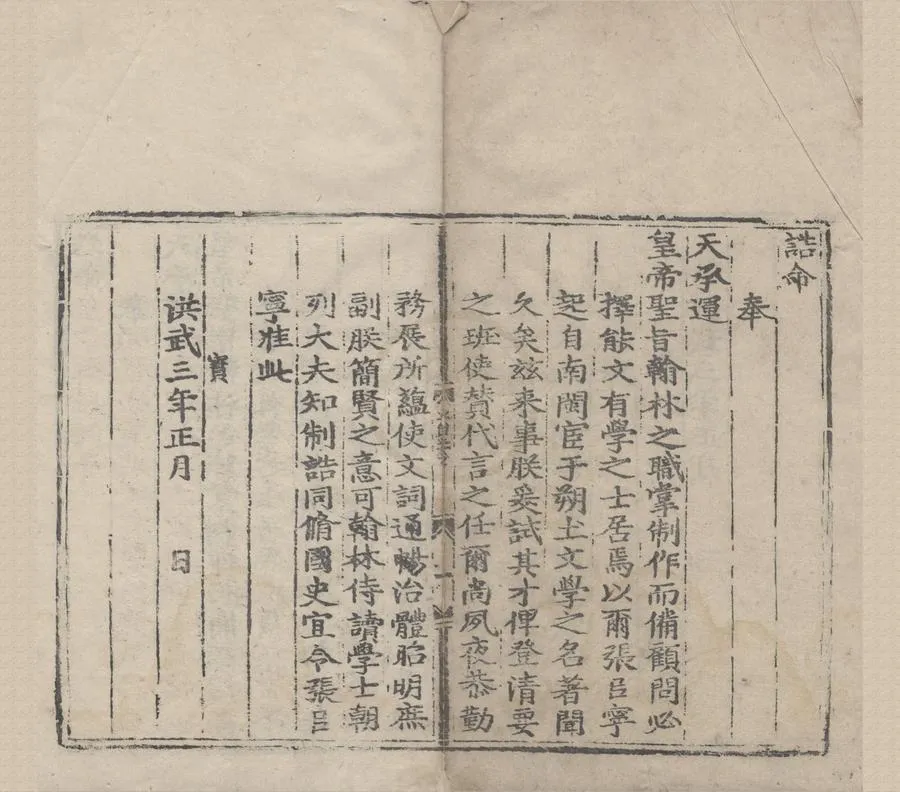 誥命
奉
天承運
皇帝聖旨翰林之職掌制作而備顧問必
擇能文有學之士居焉以爾張㠯寧
起自南閩宦于朔土文學之名著聞
久矣兹来事朕爰試其才俾登清要
之班使賛代言之任爾尚夙夜恭勤
務展所蘊使文詞通暢治體昭明庶
副朕簡賢之意可翰林侍讀學士朝
列大夫知制誥同脩國史宜令張㠯
寧准此
寳
洪武三年正月 日